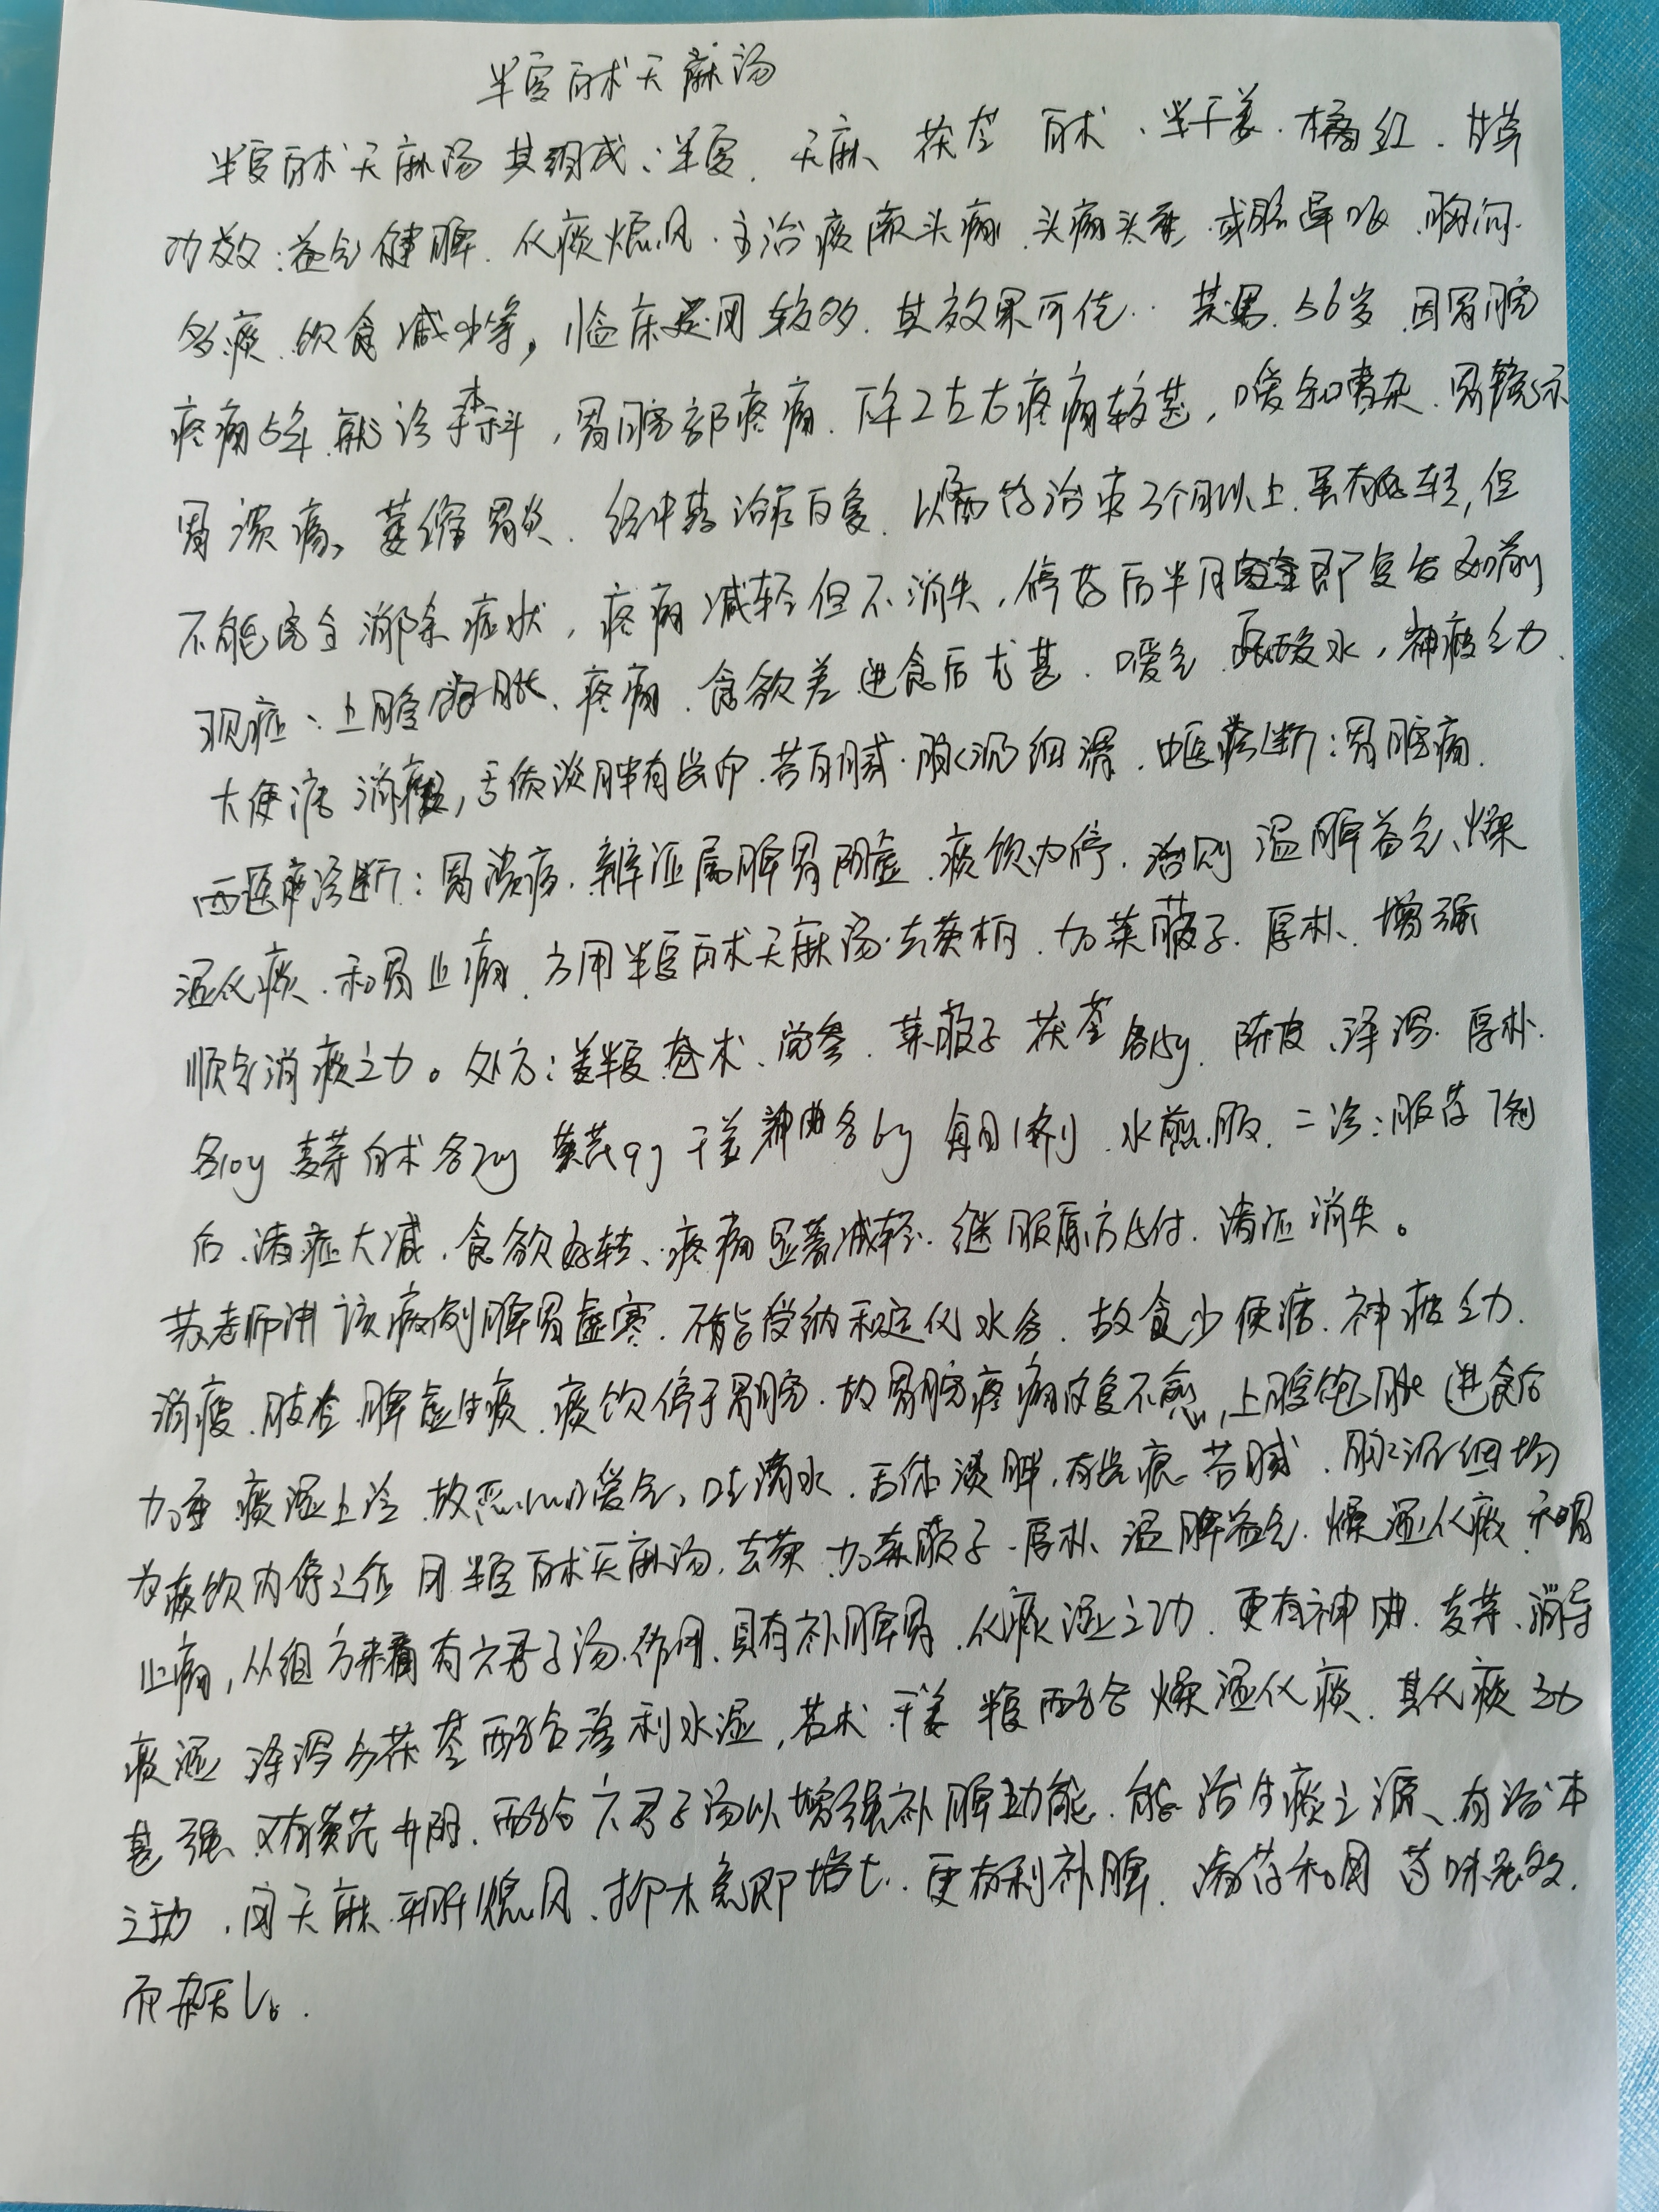 半夏白术天麻汤
半夏白术天麻汤其组成：半夏、天麻、茯苓 白术、生干姜、橘红、甘草
功效：益气健脾、化痰熄风、主治痰厥头痛、头痛头重 或胸闷
多痰、饮食减少等，临床运用较多、其效果可佳．某男、56岁 因胃脘
疼痛5年就诊本科，胃脘部疼痛、下午2左右疼痛较甚，嗳气嘈杂、胃镜示
胃溃疡、萎缩胃炎、经中药治疗 3个月以上、虽有好转，但
不能完全消除症状，疼痛减轻但不消失，停药后半月 即复发如前
现症：上腹饱胀、疼痛、食欲差 进食后尤甚、嗳气 酸水，神疲乏力、
大便溏 消瘦，舌质淡胖有齿印、苔白腻、脉沉细滑、中医诊断：胃脘痛、
西医诊断：胃溃疡、辨证属脾胃阳虚、痰饮内停、治则 温脾益气、燥
湿化痰、和胃止痛、方用半夏白术天麻汤去黄柏、加莱菔子、厚朴、增强
顺气消痰之力。处方：姜半夏 苍术、党参、莱菔子 茯苓各15g、陈皮、泽泻、厚朴、
各10g 麦芽 白术各20g 黄芪9g 干姜 神曲各6g 每日1剂、水煎服、二诊：服药7剂
后、诸症大减、食欲好转、疼痛显著减轻、继服原方15付、诸证消失。
苏老师讲该病例脾胃虚寒、不能受纳和运化水谷、故食少便溏、神疲乏力、
消瘦、肢冷、脾虚生痰、痰饮停于胃脘、故胃脘疼痛反复不愈，上腹饱胀 进食后
加重 痰湿上泛 故恶心嗳气、吐清水、舌体淡胖，有齿痕 苔腻、脉沉细均
为痰饮内停之征 用半夏白术天麻汤、去黄 加莱菔子、厚朴、温脾益气、燥湿化痰、和胃
止痛，从组方来看有六君子汤、作用、具有补脾胃、化痰湿之功、更有神曲、麦芽、消导
痰湿 泽泻与茯苓配合渗利水湿，苍术、干姜 半夏配合燥湿化痰、其化痰之功
甚强、又有黄芪升阳、配合六君子汤以增强补脾功能、能治生痰之源、有治本
之功，用天麻平肝熄风、抑木急即培土、更有利补脾、诸药和用 药味
而